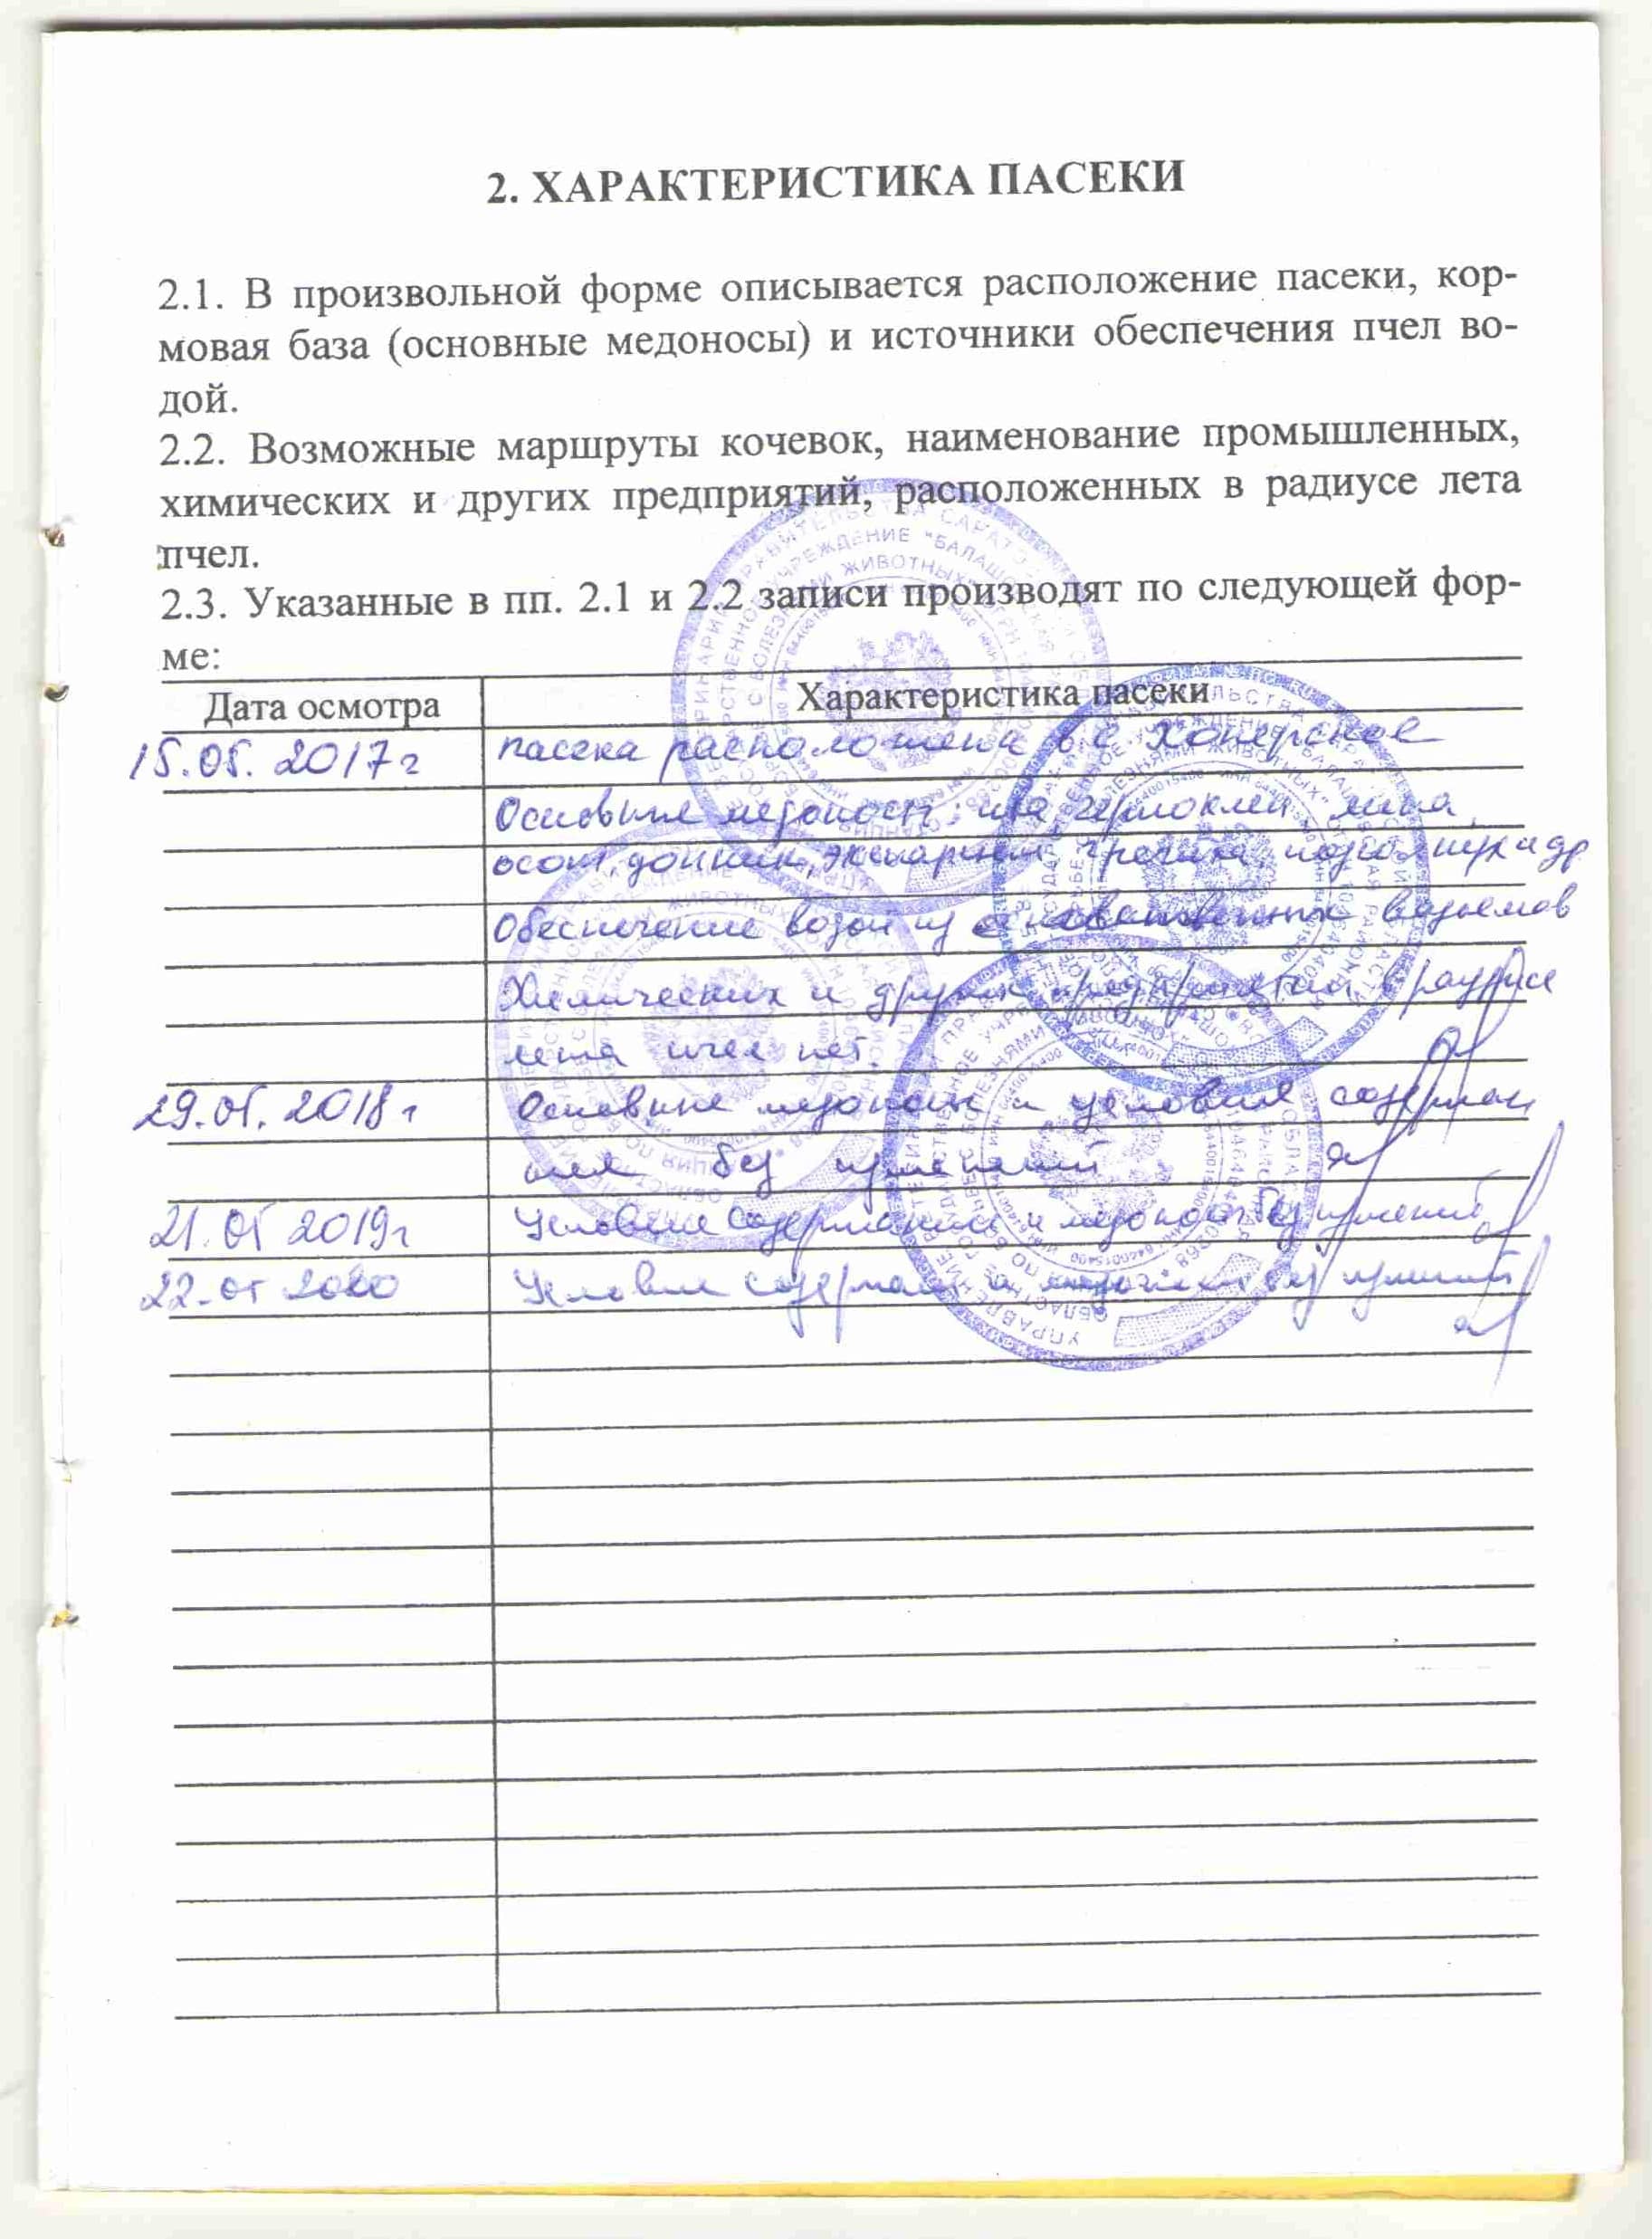 2. ХАРАКТЕРИСТИКА ПАСЕКИ
2.1. В произвольной форме описывается расположение пасеки, кор-
мовая база (основные медоносы) и источники обеспечения пчел во-
дой.
2.2. Возможные маршруты кочевок, наименование промышленных,
химических и других предприятий, расположенных в радиусе лета
пчел.
2.3. Указанные в пп. 2.1 и 2.2 записи производят по следующей фор-
ме:
Дата осмотра Характеристика пасеки
15.05.2017г пасека расположена в с Хоперское
Основные медоносы: ива, черноклен, липа,
осот, донник, эспарцет, гречиха, подсолнух и др
Обеспечение водой из водоемов
Химических и других предприятий в радиусе
лета пчел нет.
29.05.2018г Основные медоносы и условия содержан
ия без изменений
21.05 2019г Условия содержания и медоносы без изменений
22.05 2020 Условия содержан и медоносы без изменений